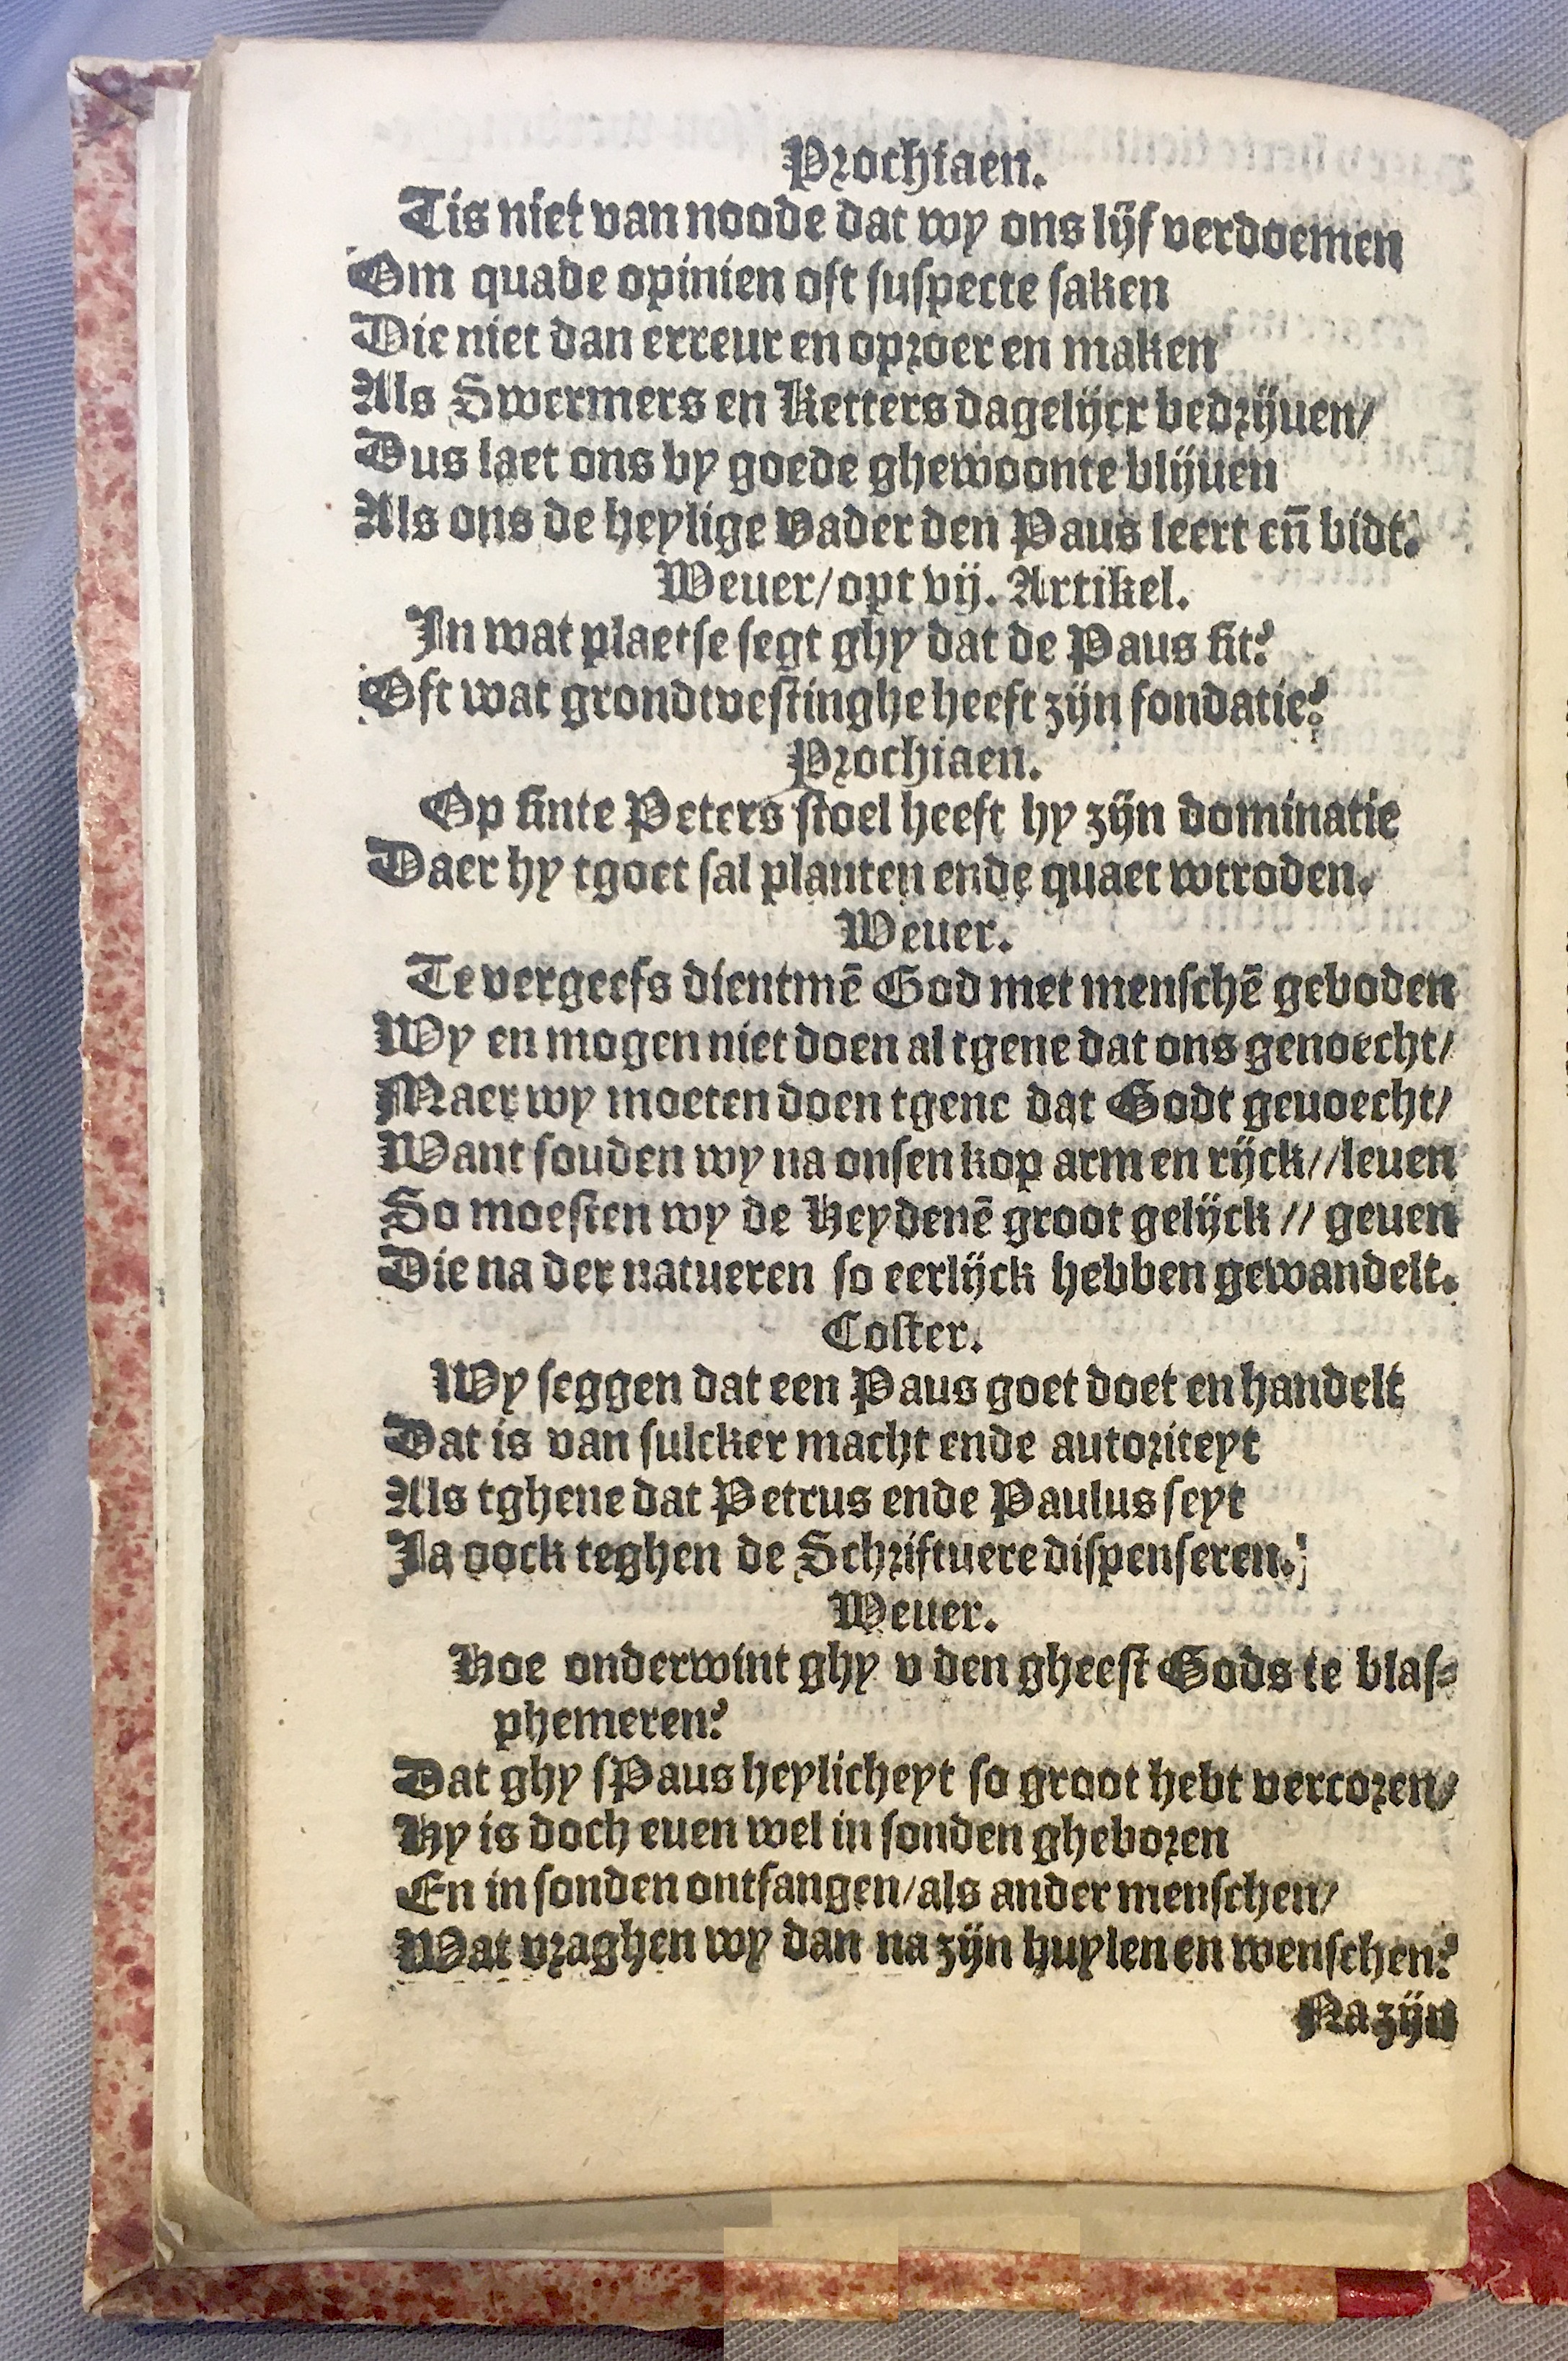 Prochiaen.
Tis niet van noode dat wy ons lijf verdoemen
Om quade opinien oft suspecte saken
Die niet dan erreur en oproer en maken
Als Swermers en Ketters dagelijcx bedrijuen/
Dus laet ons by goede ghewoonte blijuen
Als ons de heylige Vader den Paus leert eñ bidt.
Weuer/opt vij. Artikel.
In wat plaetse segt ghy dat de Paus sit?
Oft wat grondtvestinghe heeft zijn fondatie?
Prochiaen.
Op sinte Peters stoel heeft hy zijn dominatie
Daer hy tgoet sal planten ende quaet wtroden.
Weuer.
Te vergeefs dientmē God met menschē geboden
Wy en mogen niet doen al tgene dat ons genoecht/
Maer wy moeten doen tgene dat Godt genoecht/
Want souden wy na onsen kop arm en rijck//leuen
So moesten wy de Heydenē groot gelijck // geuen
Die na der natueren so eerlijck hebben gewandelt.
Coster.
Wy seggen dat een Paus goet doet en handelt
Dat is van sulcker macht ende autoriteyt
Als tghene dat Petrus ende Paulus seyt
Ja oock teghen de Schriftuere dispenseren.
Weuer.
Hoe onderwint ghy v den gheest Gods te blas-
phemeren?
Dat ghy sPaus heylicheyt so groot hebt vercoren/
Hy is doch euen wel in sonden gheboren
En in sonden ontfangen/als ander menschen/
Wat vraghen wy dan na zijn huylen en wenschen?
Na zijn